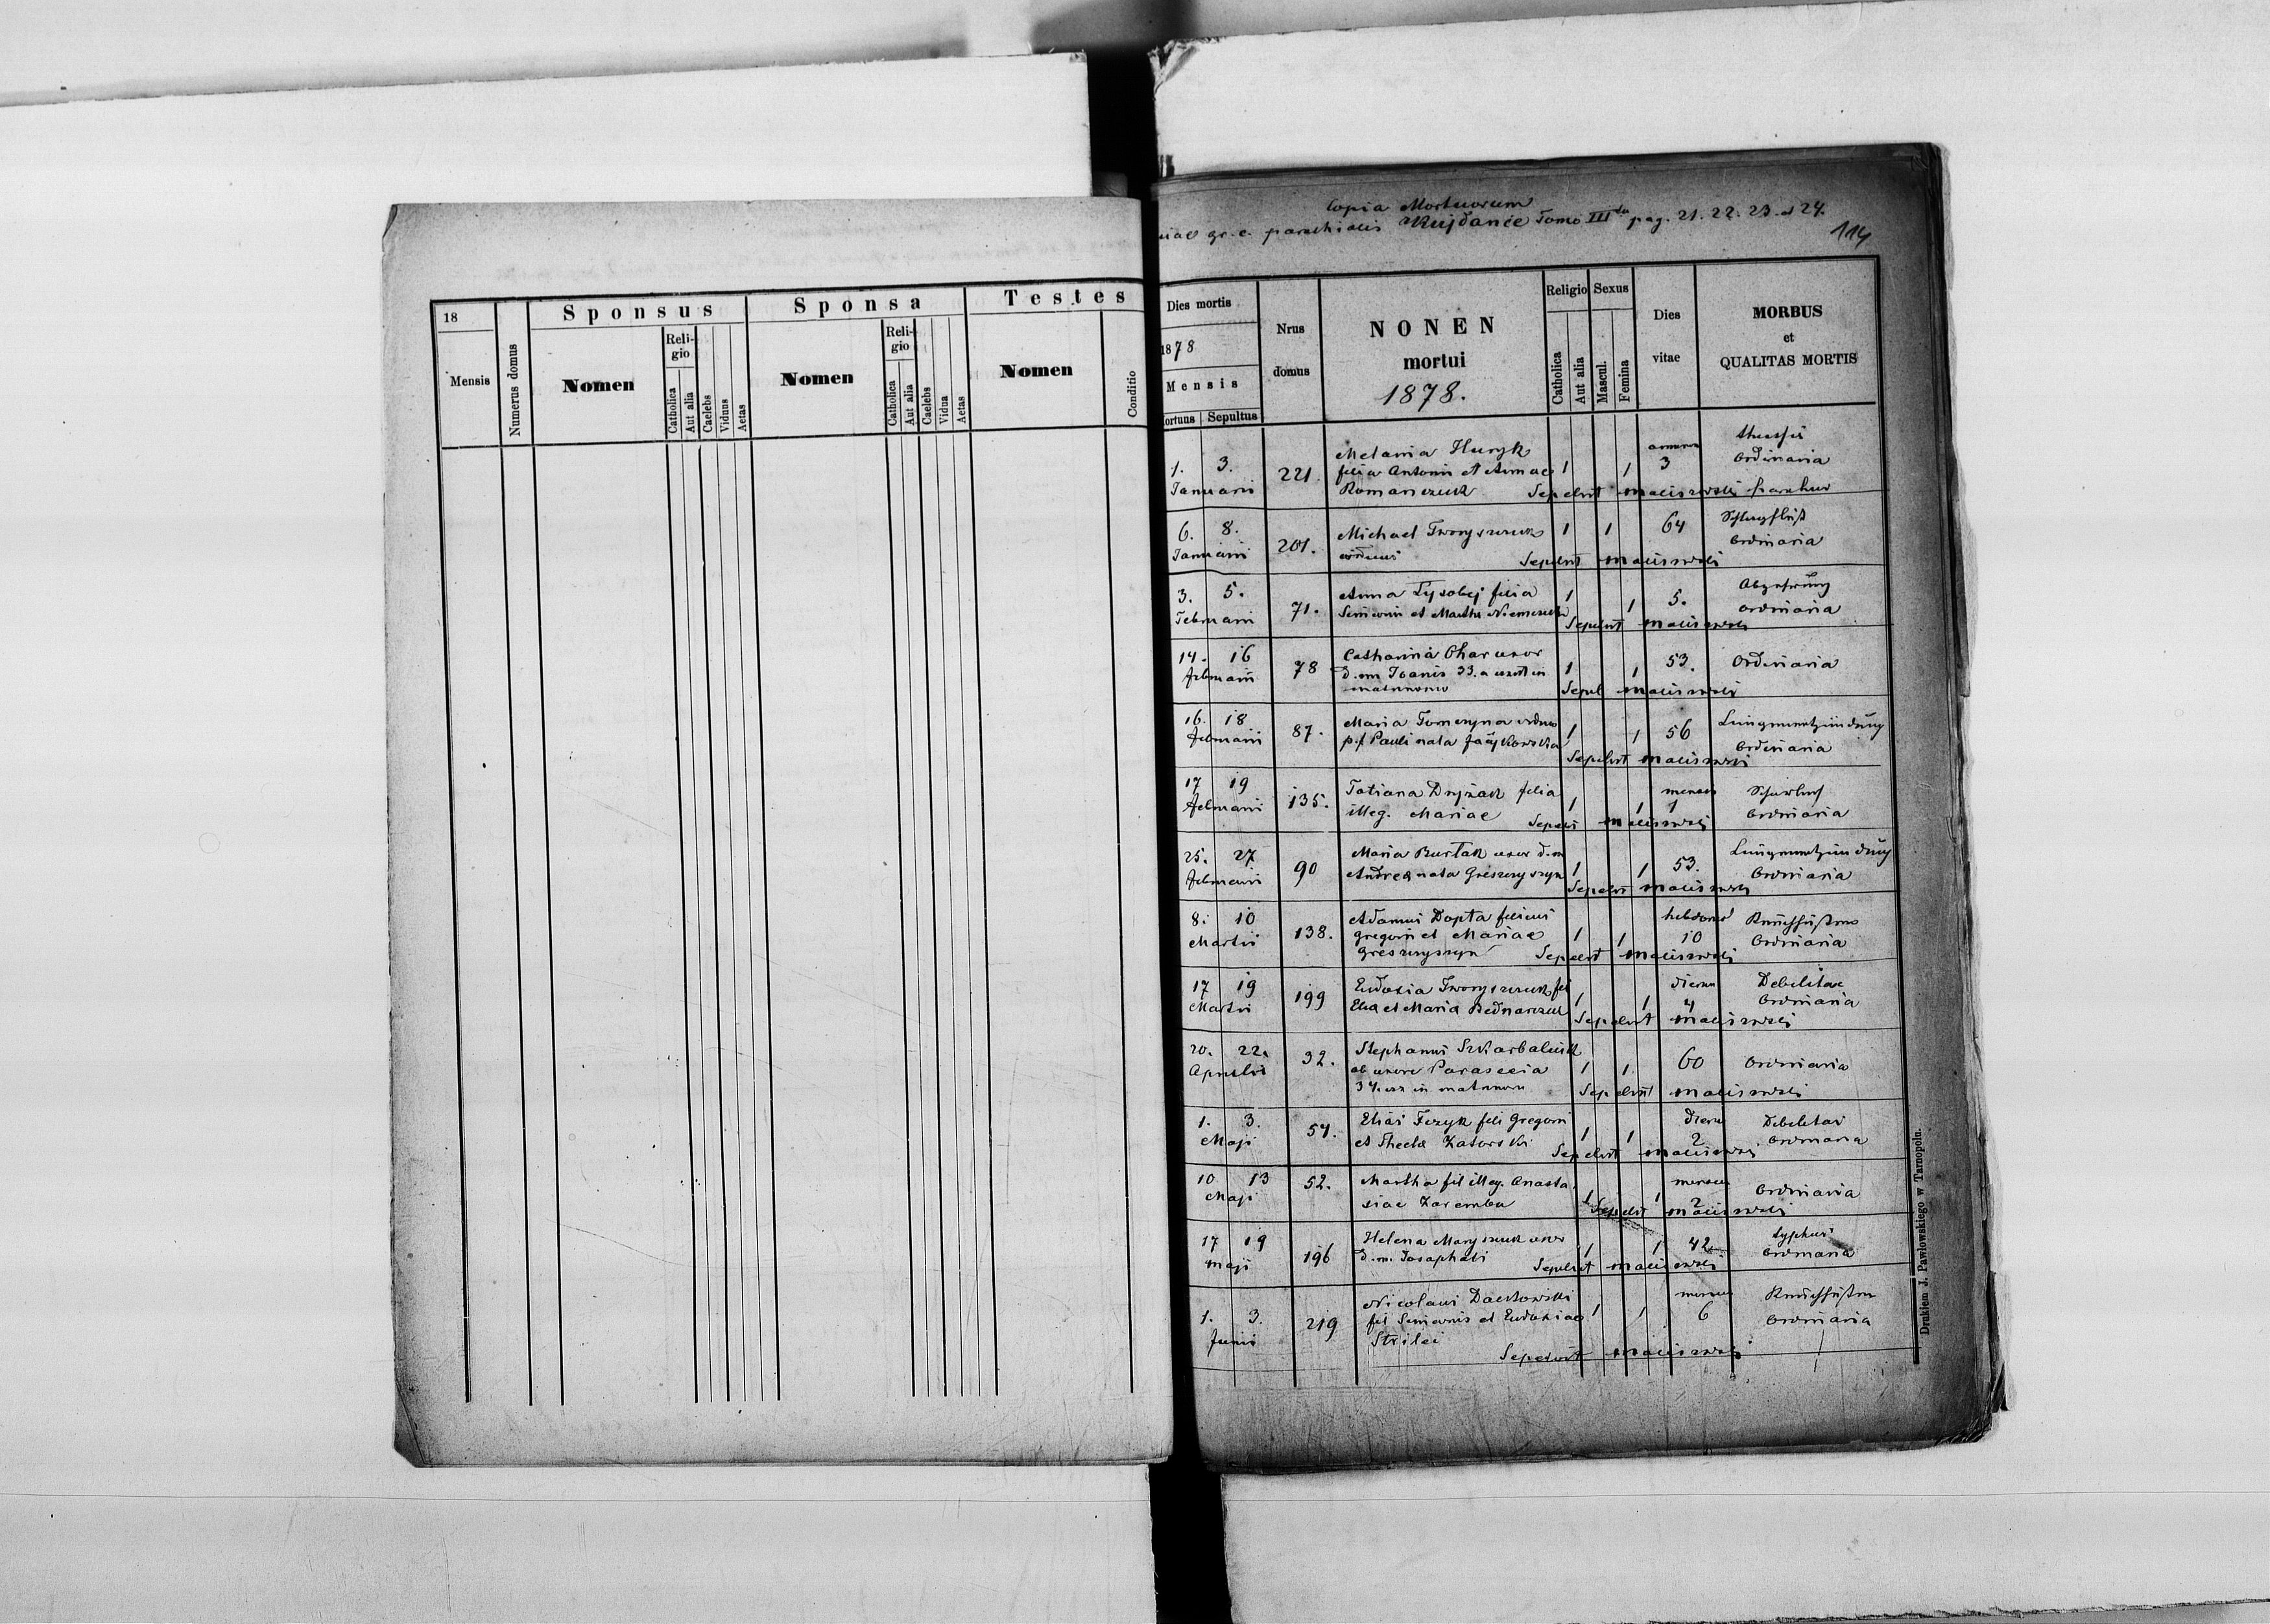 18
Mensis
Numerus domus
Sponsus
Nomen
Religio
Catholica
Aut alia
Caelebs
Viduus
Aetas
Sponsa
Nomen
Religio
Catholica
Aut alia
Caelebs
Vidua
Aetas
Testes
Nomen
Conditio
Copia Mortuorum
gr. c. parochialis Kujdańce Tomo III pag. 21. 22. 23. et 24.
114
Dies mortis
1878
Mensis
Mortuus Sepultus
Nrus
domus
NONEN
mortui
1878.
Religio
Catholica
Aut alia
Sexus
Mascul.
Femina
Dies
vitae
MORBUS
et
QUALITAS MORTIS
1. 3.
Januarii
221.
Melania Huryk
filia Antonii et Annae
Romanczuk
1 1
annorum
3
ordinaria
Sepelivit Maciszewski parochus
6. 8.
Januarii
201.
Michael Tworyszczuk
viduus
1 1
64
Schlagfluß
ordinaria
Sepelivit Maciszewski
3. 5.
Februarii
71.
Anna Łysobej filia
Simeonis et Martha
1 1
5.
Abzehrung
ordinaria
Sepelivit Maciszewski
14. 16
Februarii
78
Catharina uxor
d. m. Joanis 33. a
matrimonio
1 1
53.
Ordinaria
Sepel Maciszewski
16. 18.
Februarii
87.
Maria Tomczyna vidua
p. f. Pauli nata
1 1
56
Lungenentzündung
ordinaria
Sepelivit Maciszewski
17 19
Februarii
135.
Tatiana Dryżak filia
illeg. Mariae
1 1
mensis
1
ordinaria
Sepeliv Maciszewski
25. 27
Februarii
90
Maria Burtak uxor d. m
Andrea nata Greszczyszyn
1 1
53.
Lungenentzündung
Ordinaria
Sepelivit Maciszewski
8. 10
Martii
138.
Adamus Dopta filius
Gregorii et Mariae
Greszczyszyn
1 1
hebdomad
10
Keuchhusten
Ordinaria
Sepelivit Maciszewski
17 19
Martii
199
Eudoxia Tworyszczuk fil
Elia et Maria Bednarczuk
1 1
dierum
4
Debilitas
Ordinaria
Sepelivit Maciszewski
20. 22.
Aprilis
32.
Stephanus
ab uxore Parascevia
34 in matrimon
1 1
60
Ordinaria
Sepelivit Maciszewski
1. 3.
Maji
Elias fili Gregorii
et Thecla Zatorski
1 1
dierum
2
Debilitas
Ordinaria
Sepelivit Maciszewski
10 13
Maji
52.
Martha fil illeg. Anasta
siae Zaremba
1 1
mensium
2
Ordinaria
Sepelivit Maciszewski
17 19
Maji
196
Helena uxor
d. m. Josaphati
1 1
42
typhus
Ordinaria
Sepelivit Maciszewski
1. 3.
Junii
219
Nicolaus
fil Simeonis et Eudoxiae
Strilei
1 1
mensium
6
Keuchhusten
Ordinaria
Sepelivit Maciszewski
Drukiem J. Pawłowskiego w Tarnopolu.